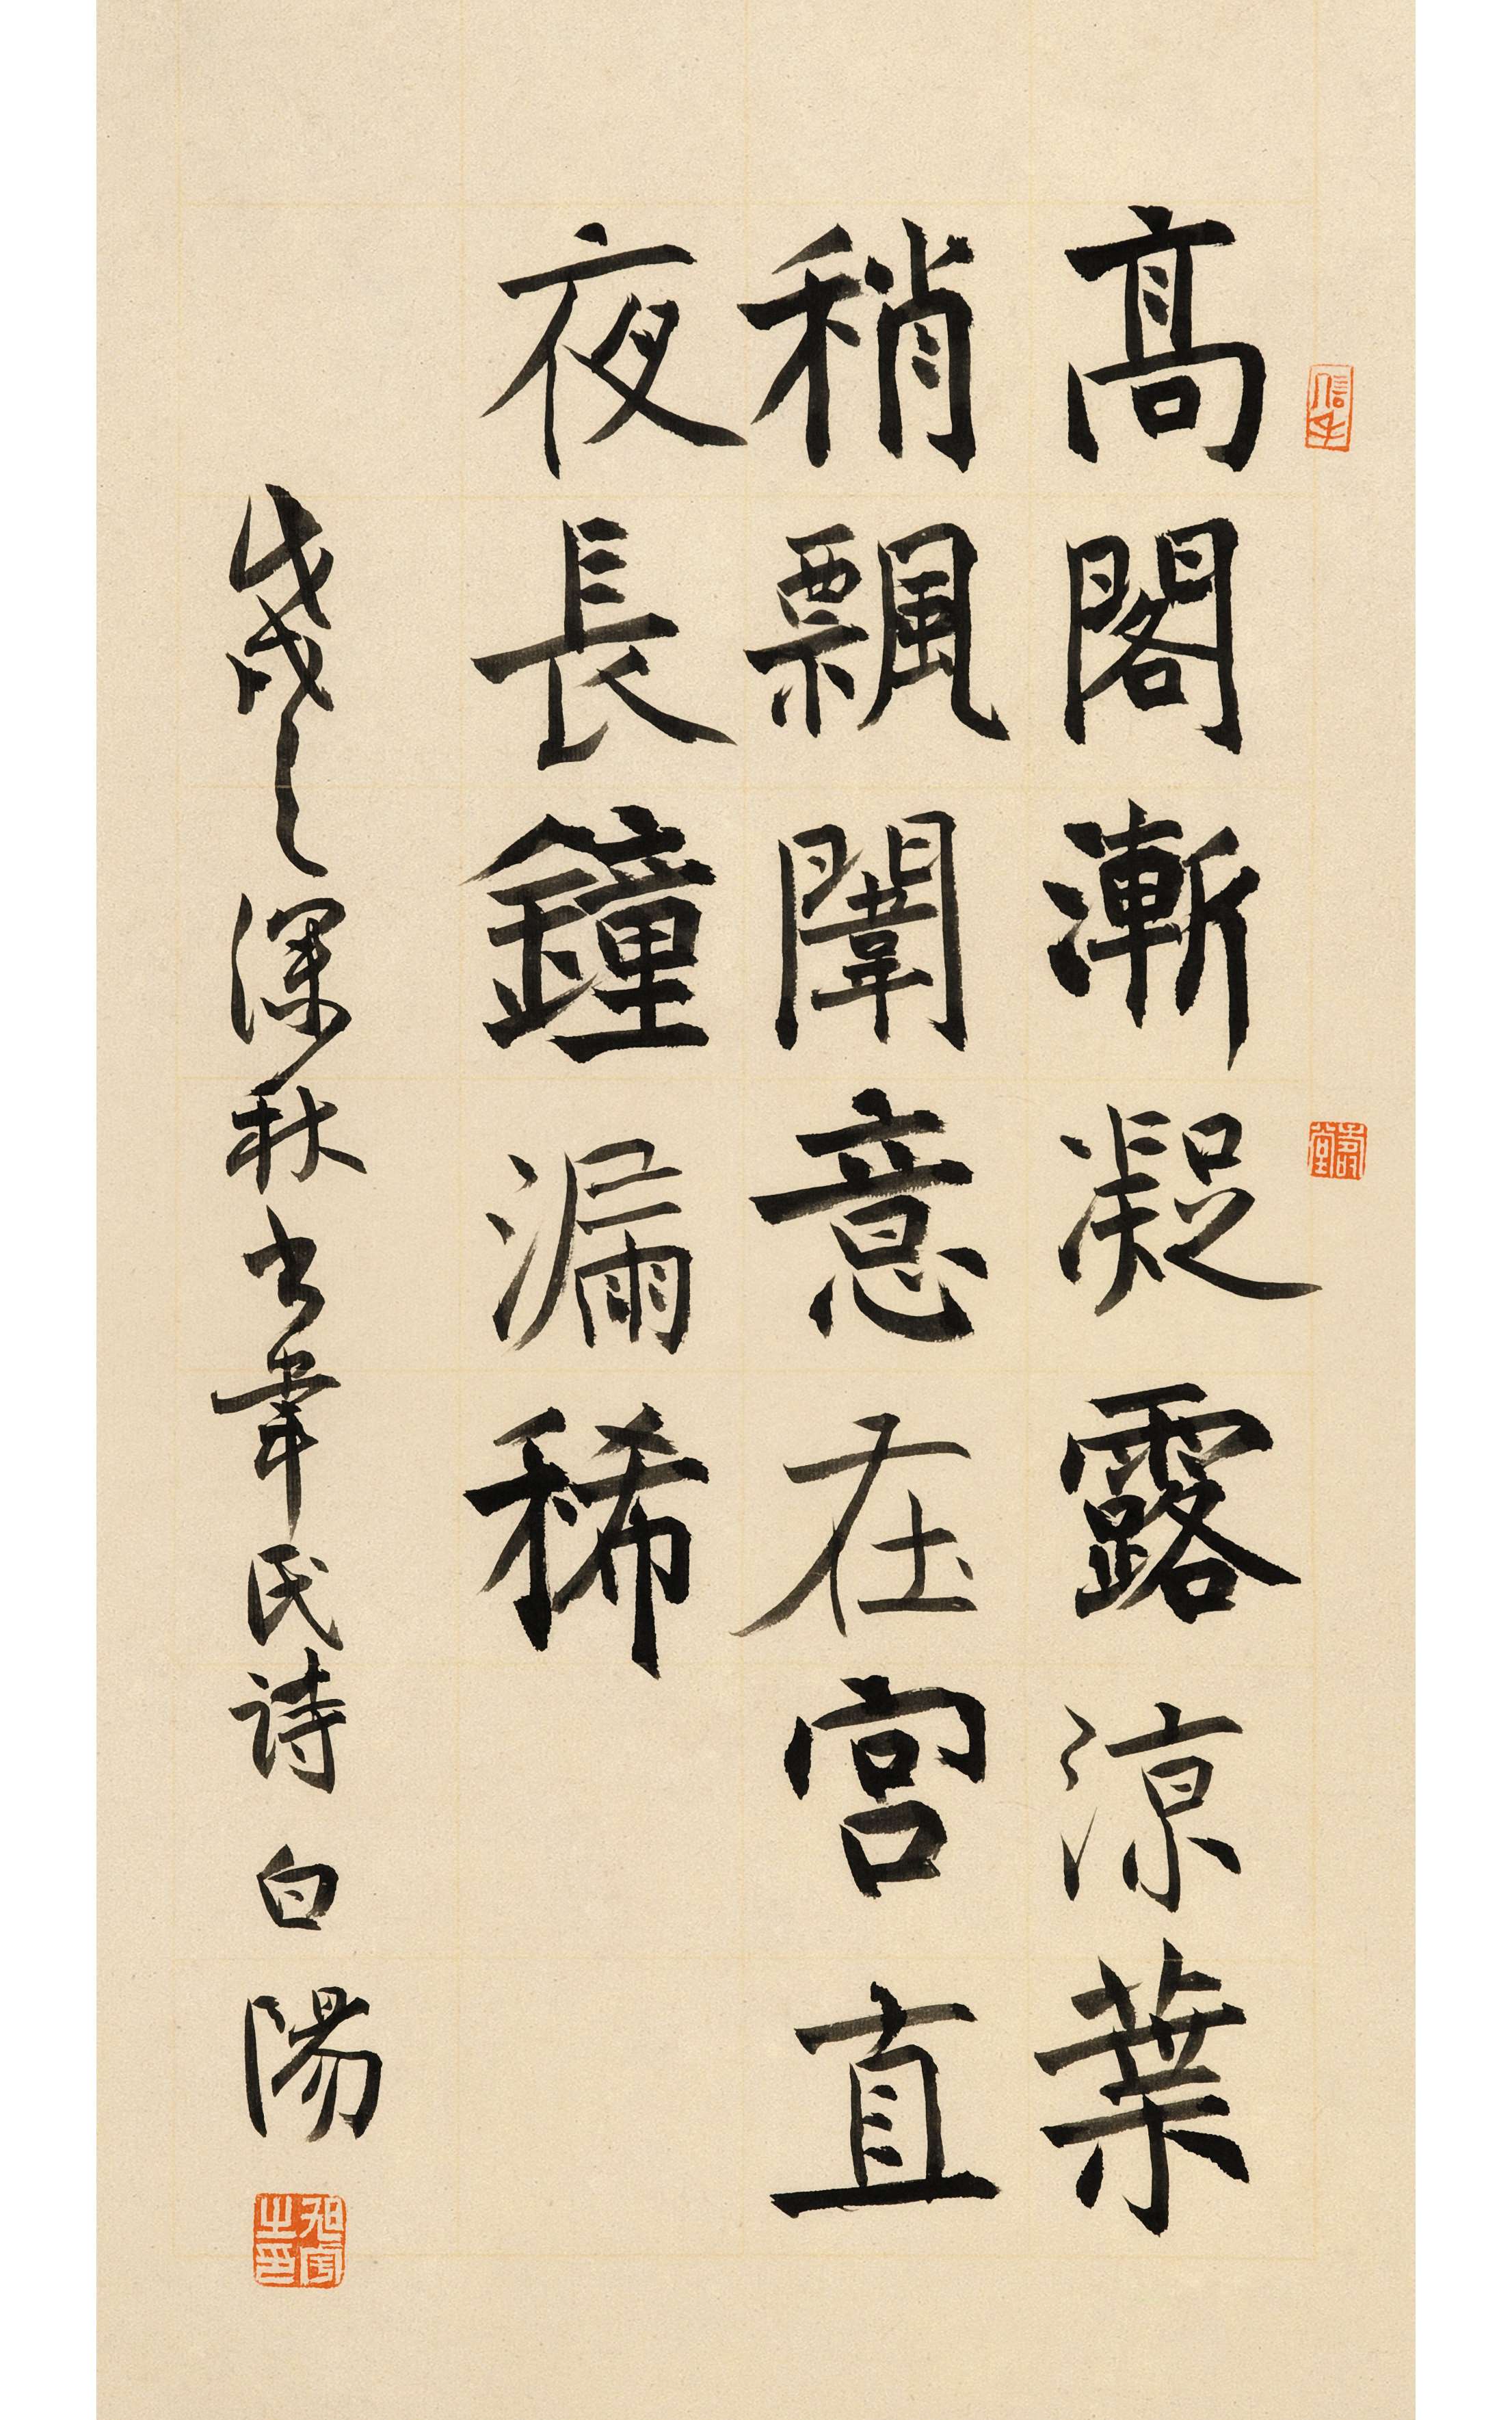 高閣漸凝露涼葉
稍飄闈意在宮直
夜長鐘漏稀
戊戌之深秋書韋氏詩 白陽